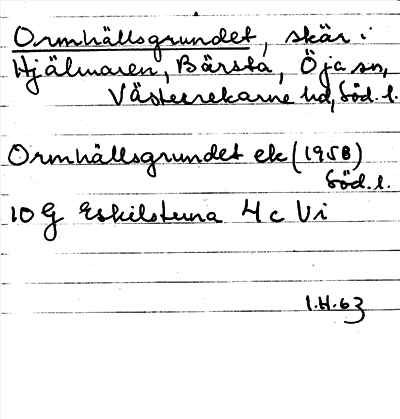 Ormhällsgrundet, skär i
Hjälmaren, Bärsta, Öja sn,
Västerrekarne hd, Söd. l.
Ormhällsgrundet ek (1958)
Söd. l.
10 G Eskilstuna 4 c Vi
I.H. 63